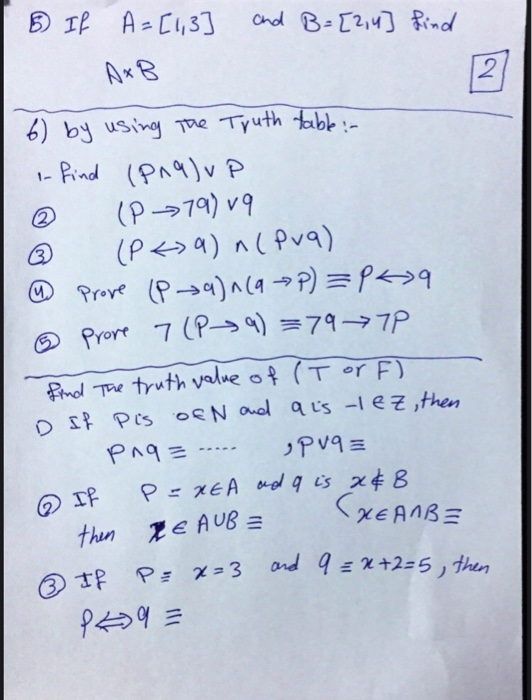 5) If A = [1,3] and B = [2,4] find
A×B
2
6) by using The Truth table :-
1- find (P∧q)∨P
② (P→7q)∨q
③ (P↔q)∧(P∨q)
④ Prove (P→q)∧(q→P)≡P↔q
⑤ Prove 7(P→q)≡7q→7P
find The truth value of (T or F)
① If P is 0∈N and q is -1∈Z, then
P∧q ≡ ..... , P∨q ≡
② If P ≡ x∈A and q is x∉B
then x∈A∪B ≡ (x∈A∩B ≡
③ If P ≡ x=3 and q ≡ x+2=5, then
P⇔q ≡